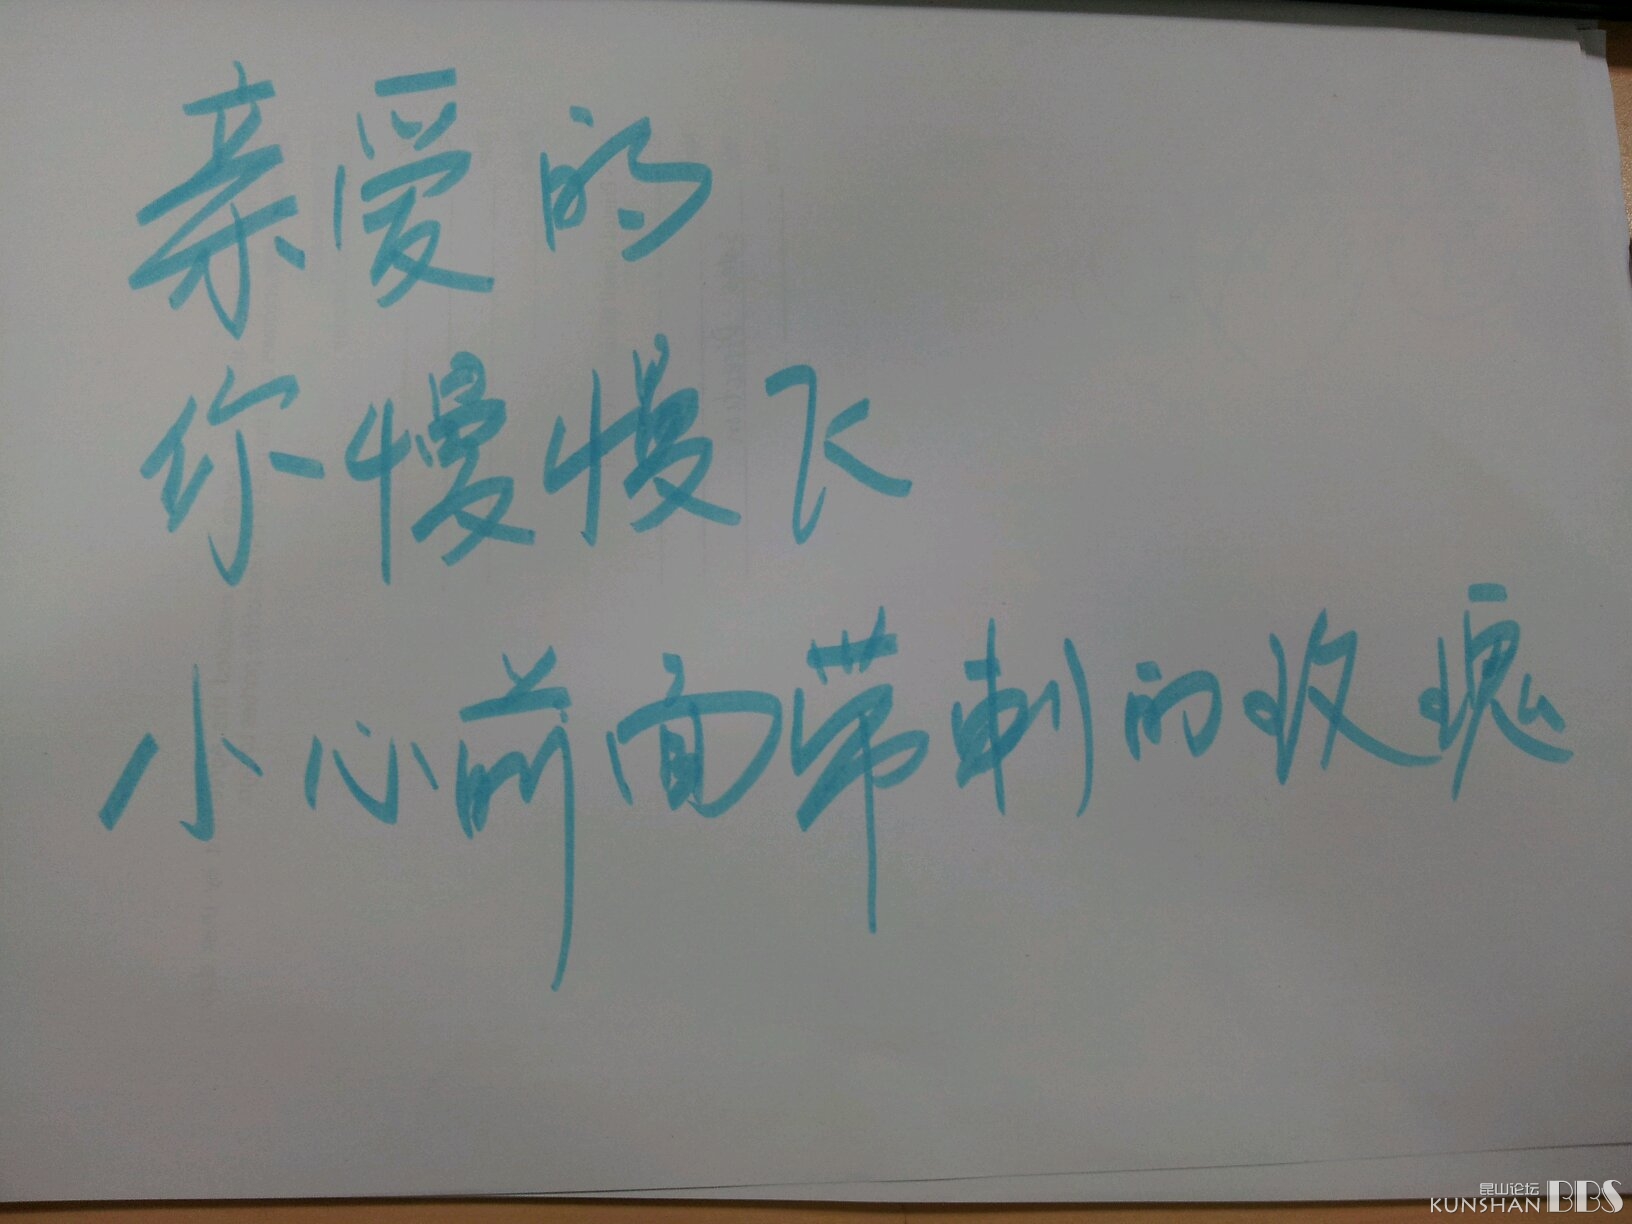 亲爱的
你慢慢飞
小心前面带刺的玫瑰
昆山论坛
KUNSHAN BBS